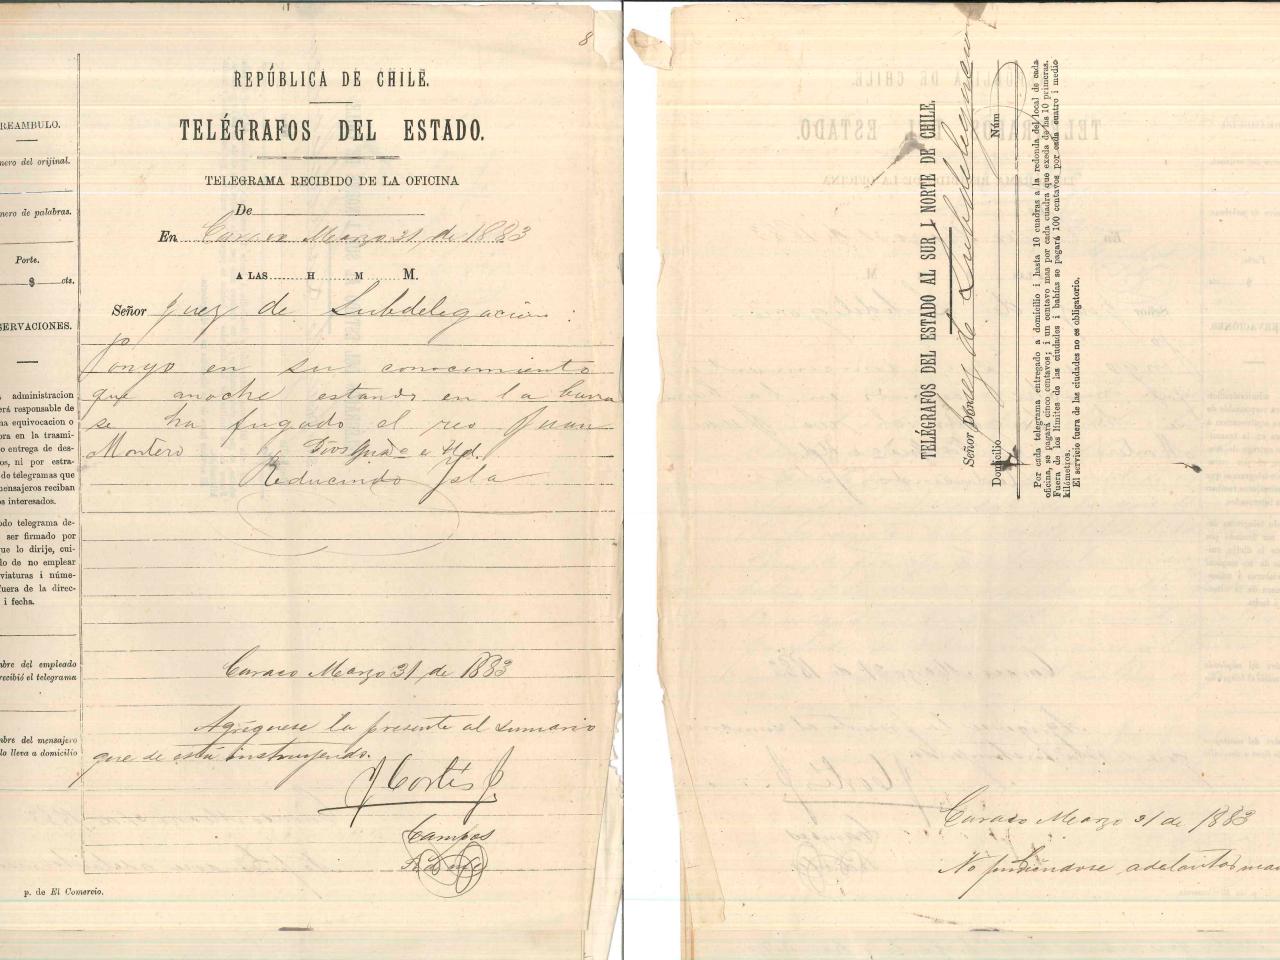 8
REPÚBLICA DE CHILE.
TELÉGRAFOS DEL ESTADO.
TELEGRAMA RECIBIDO DE LA OFICINA
De
En Curaco Marzo 31 de 1883
A LAS H M M.
Señor Juez de Subdelegacion:
Pongo en su conocimiento
que anoche estando en la barra
se ha fugado el reo Juan
Montero Dios gue a Ud.
Isla
REAMBULO.
mero del orijinal.
mero de palabras.
Porte.
$ cts.
SERVACIONES.
administracion
erá responsable de
na equivocacion o
ora en la trasmi-
o entrega de des-
os, ni por estra-
de telegramas que
mensajeros reciban
s interesados.
odo telegrama de-
ser firmado por
ue lo dirije, cui-
do de no emplear
viaturas i núme-
fuera de la direc-
i fecha.
mbre del empleado
recibió el telegrama
mbre del mensajero
lo lleva a domicilio
Curaco Marzo 31 de 1883
Agréguese la presente al sumario
que se está instruyendo.
J Cortés J.
Campos
p. de El Comercio.
TELÉGRAFOS DEL ESTADO AL SUR I NORTE DE CHILE.
Señor Don Juez de Subdelegacion
Domicilio Núm
Por cada telegrama entregado a domicilio i hasta 10 cuadras a la redonda del local de cada
oficina, se pagará cinco centavos; i un centavo mas por cada cuadra que exeda de las 10 primeras.
Fuera de los límites de las ciudades i bahías se pagará 100 centavos por cada cuatro i medio
kilómetros.
El servicio fuera de las ciudades no es obligatorio.
Curaco Marzo 31 de 1883
No pudiéndose adelantar mas